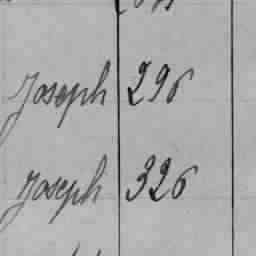 Joseph 296
Joseph 326